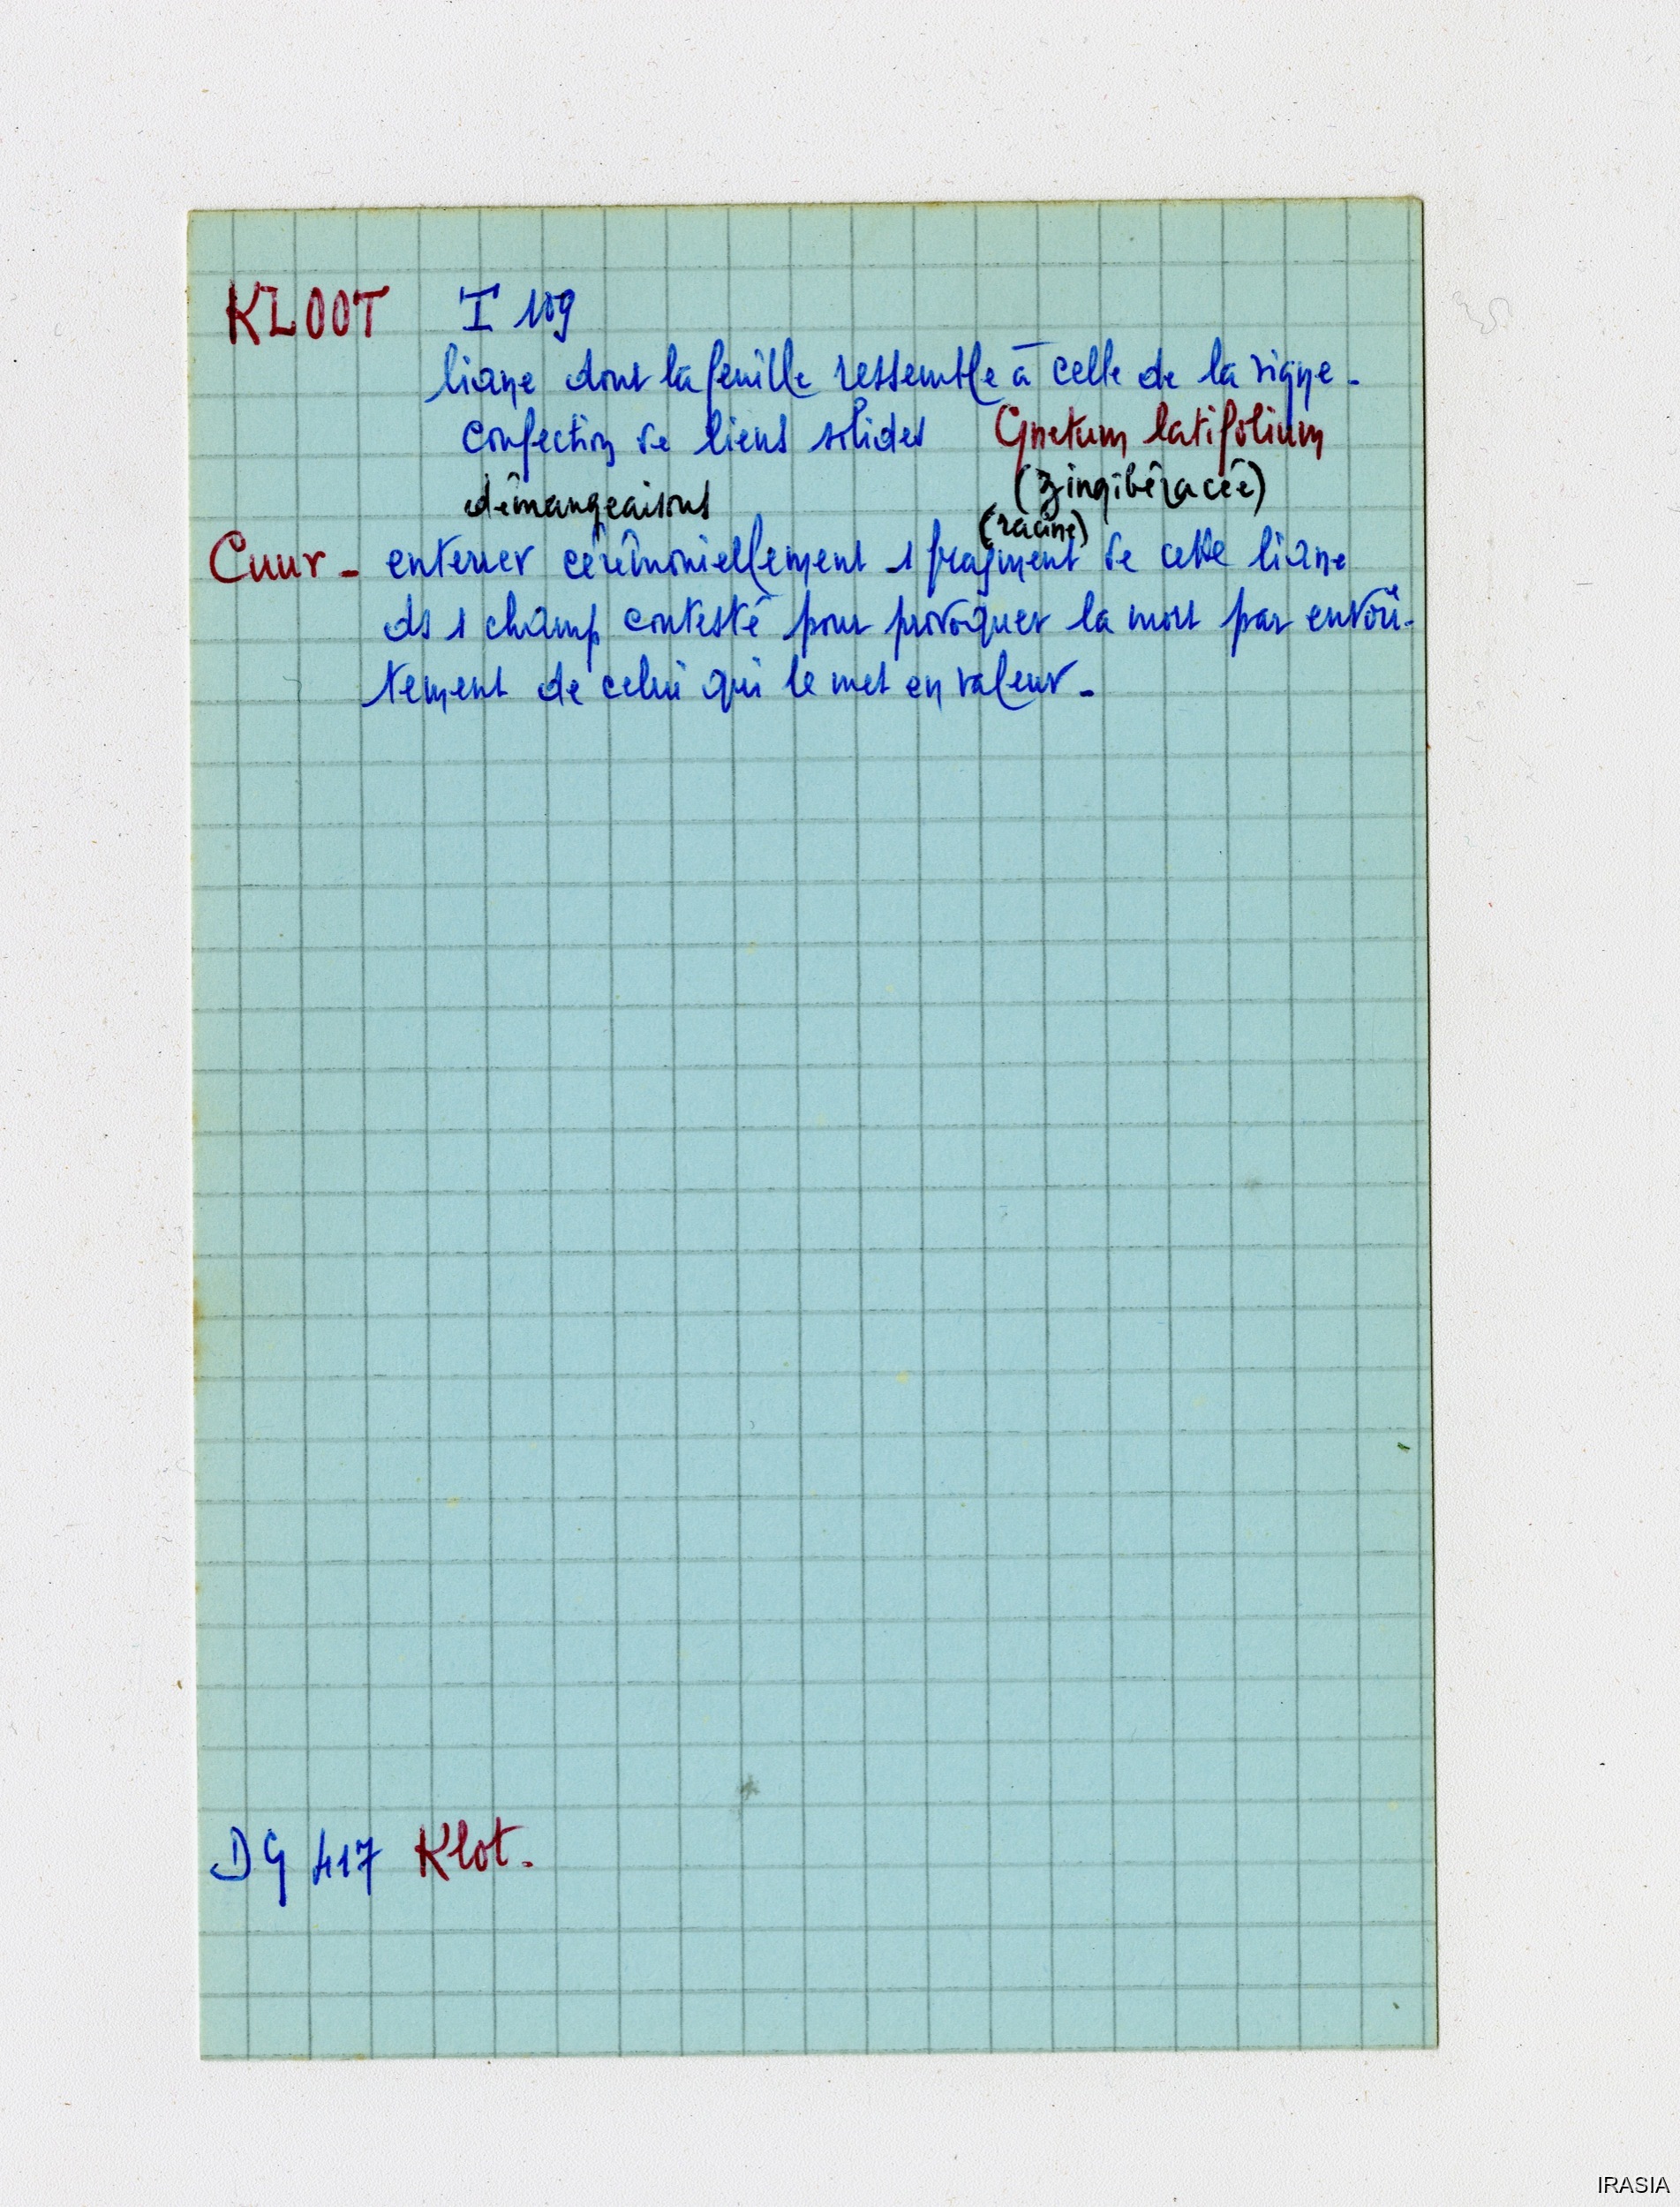 KLOOT I 109
liane dont la feuille ressemble à celle de la vigne -
confection de liens solides Gnetum latifolium
démangeaisons (zingibéracée)
(racine)
Cuur - enterrer cérémoniellement 1 fragment de cette liane
ds 1 champ contesté pour provoquer la mort par envoû-
tement de celui qui le met en valeur -
DG 417 Klot.
IRASIA